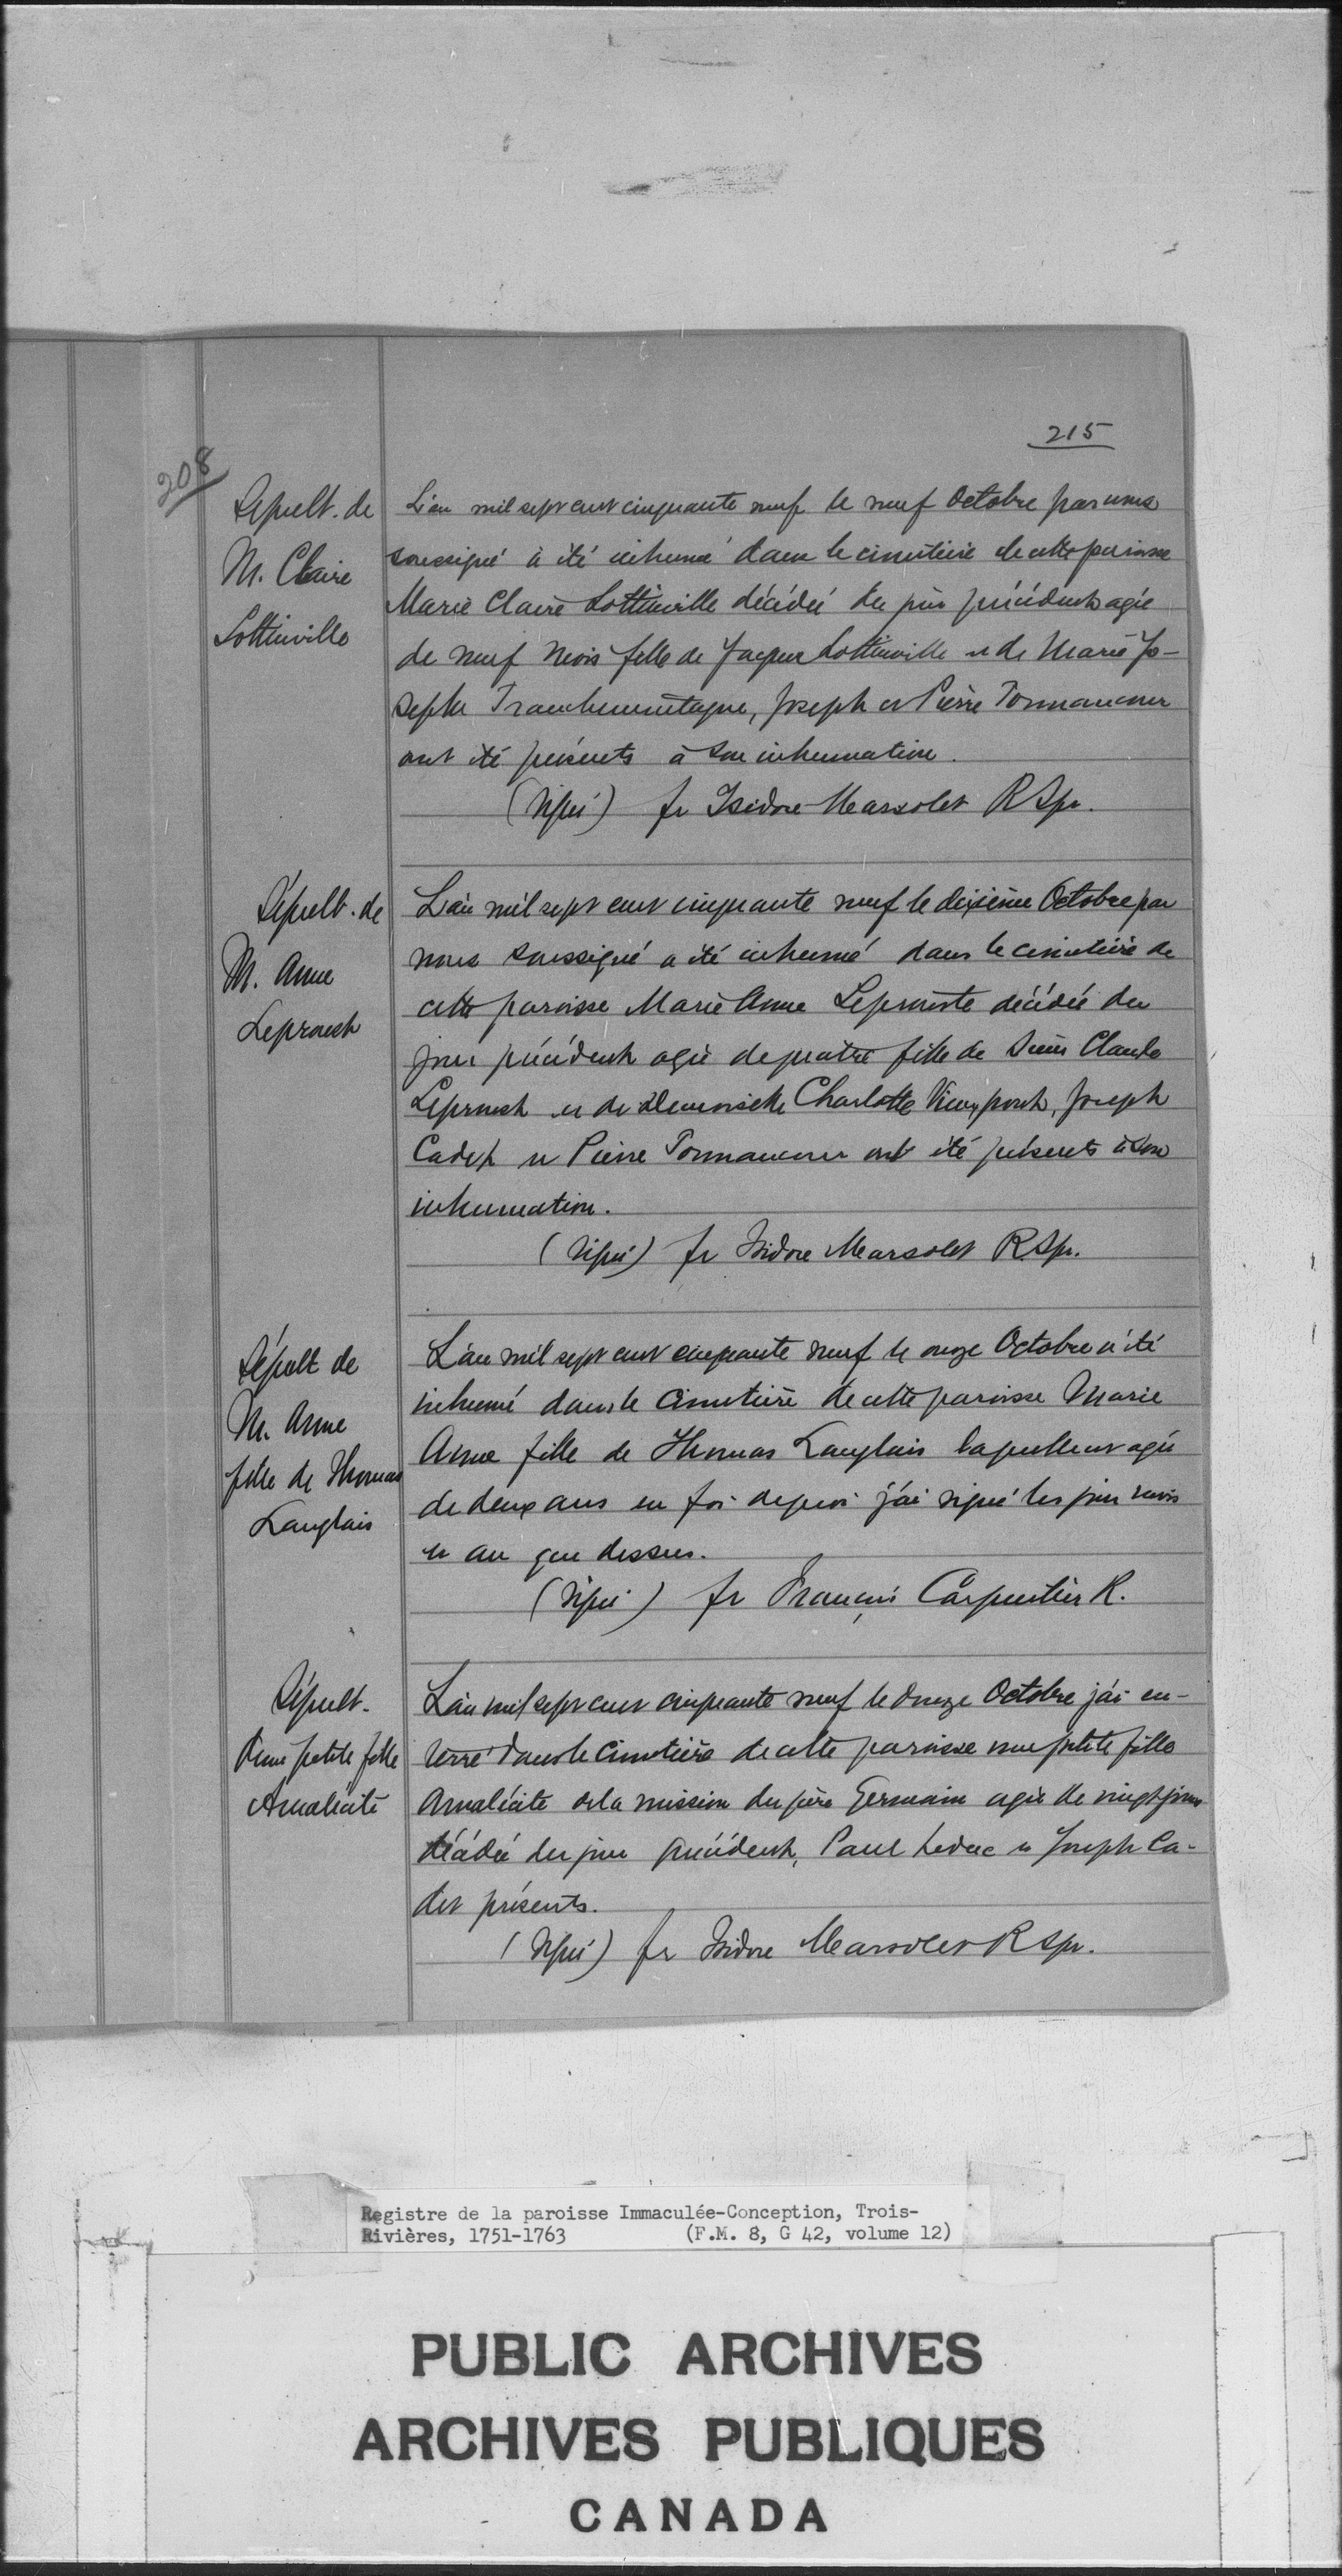 215
208
Sépult. de
M. Claire
Lottinville
L'an mil sept cent cinquante neuf le neuf Octobre par nous
soussigné à été inhumé dans le cimetière de cette paroisse
Marie Claire Lottinville décédée du jour précédent agée
de neuf mois fille de Jacques Lottinville et de Marie Jo-
sephe Tranchemontagne, Joseph et Pierre Tonnancour
ont été présents à son inhumation.
(Signé) fr Isidore Marsolet R Spr.
Sépult. de
M. Anne
Leproust
L'an mil sept cent cinquante neuf le dixième Octobre par
nous soussigné a été inhumé dans le cimetière de
cette paroisse Marie Anne Leprouste décédée du
jour précédent agée de quatre fille de Sieur Claude
Leproust et de demoiselle Charlotte Vieuxpont, Joseph
Cadet et Pierre Tonnancour ont été présents à son
inhumation.
(Signé) fr Isidore Marsolet R Spr.
Sépult de
M. Anne
fille de Thomas
Langlais
L'an mil sept cent cinquante neuf le onze Octobre a été
inhumé dans le Cimetière de cette paroisse Marie
Anne fille de Thomas Langlais laquelle est agée
de deux ans en foi de quoi j'ai signé les jour mois
et an que dessus.
(Signé) fr François Carpentier R.
Sépult.
d'une petite fille
Amalécite
L'an mil sept cent cinquante neuf le douze Octobre j'ai en-
terré dans le Cimetière de cette paroisse une petite fille
Amalécite de la mission du père Germain agée de vingt jours
décédée du jour précédent, Paul Leduc et Joseph Ca-
det présents.
(Signé) fr Isidore Marsolet R Spr.
Registre de la paroisse Immaculée-Conception, Trois-
Rivières, 1751-1763 (F.M. 8, G 42, volume 12)
PUBLIC ARCHIVES
ARCHIVES PUBLIQUES
CANADA